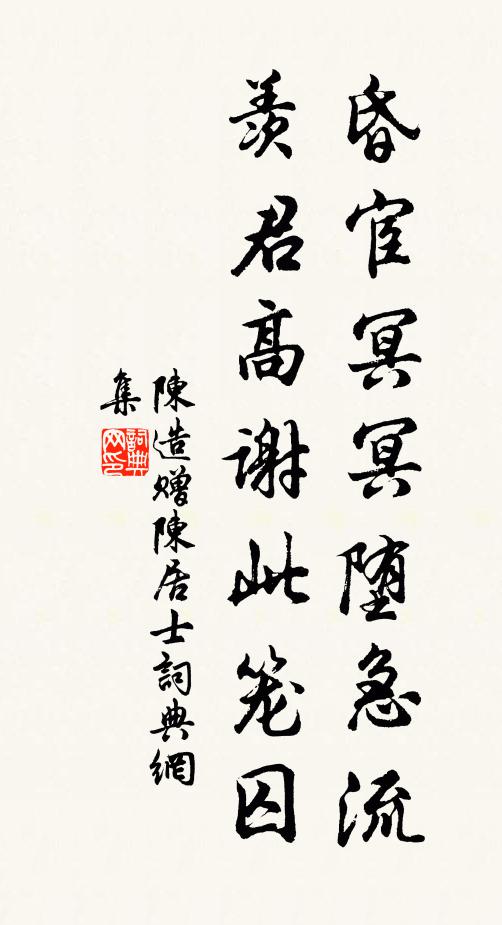 昏宦冥冥堕急流
羨君高谢此笼囚
陳造贈陳居士詞典網
集
詞典网印